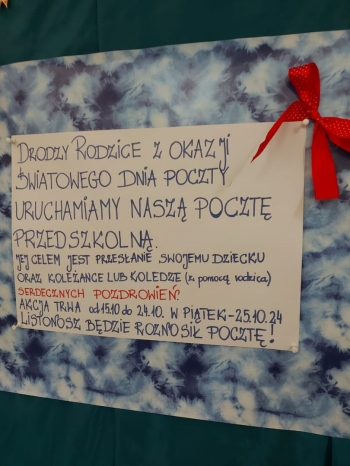 DRODZY RODZICE Z OKAZJI
ŚWIATOWEGO DNIA POCZTY
URUCHAMIAMY NASZĄ POCZTĘ
PRZEDSZKOLNĄ.
JEJ CELEM JEST PRZESŁANIE SWOJEMU DZIECKU
ORAZ KOLEŻANCE LUB KOLEDZE (z pomocą rodzica)
SERDECZNYCH POZDROWIEŃ!
AKCJA TRWA od 15.10 do 24.10. W PIĄTEK-25.10.24
LISTONOSZ BĘDZIE ROZNOSIŁ POCZTĘ!